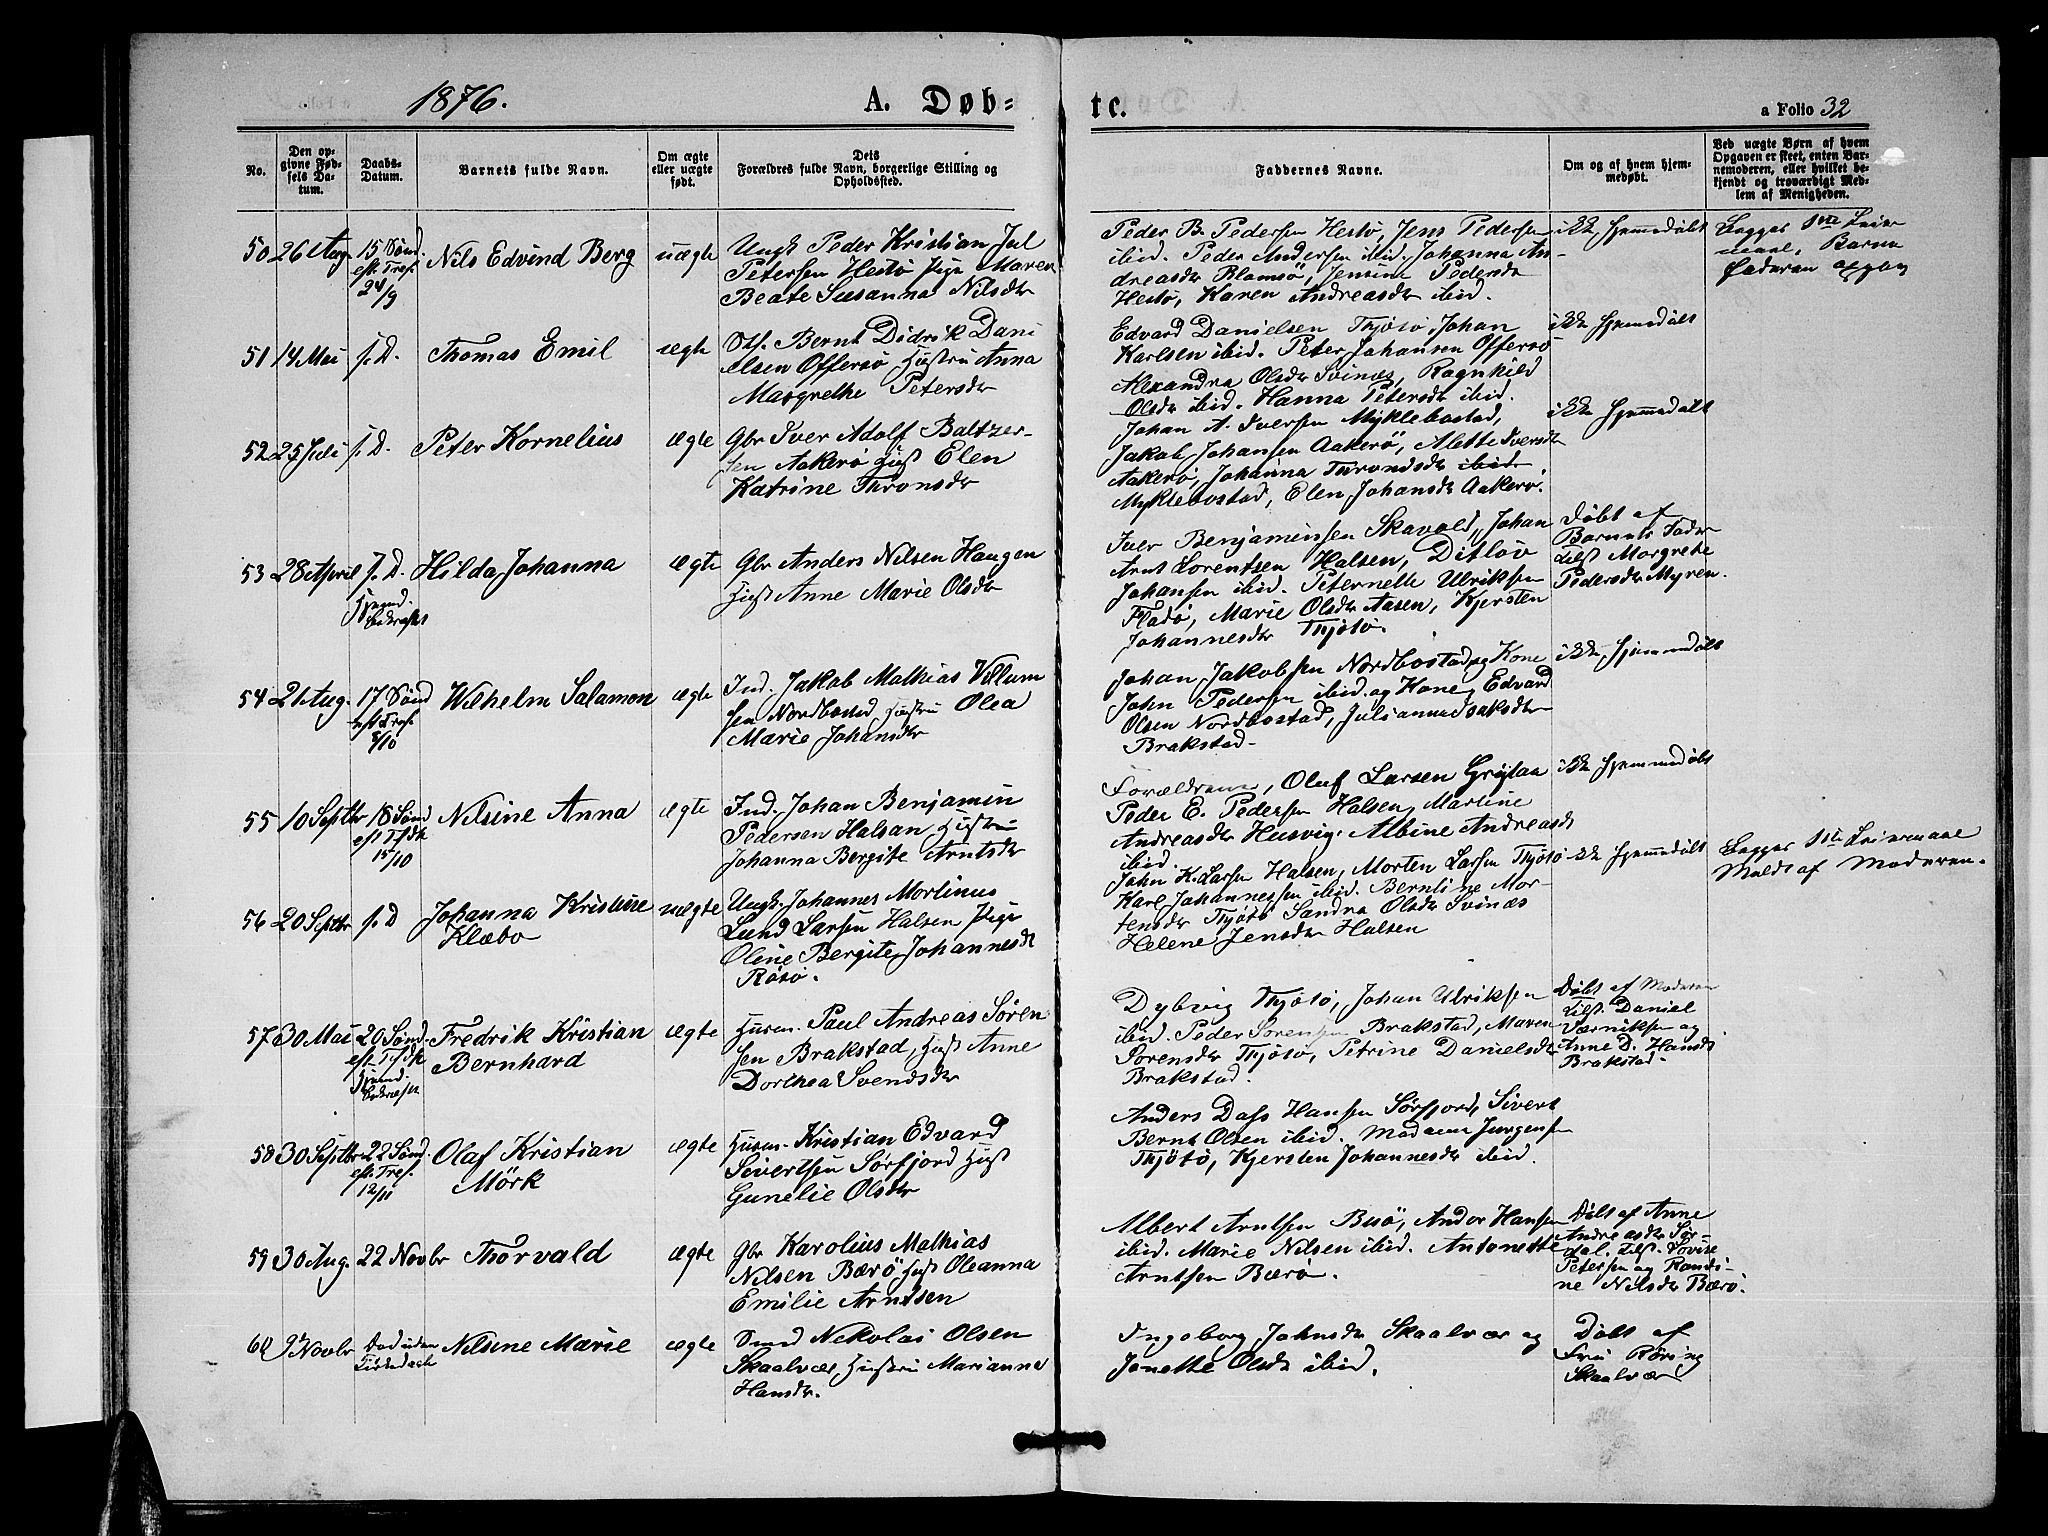 1876. A. Døb= te. a Folio 32
No.
Den op-
givne Fød-
sels Da-
tum.
Daabs-
Datum.
Barnets fulde Navn.
Om ægte
eller uægte
født.
Dets
Forældres fulde Navn, borgerlige Stilling og
Opholdssted.
Faddernes Navne.
Om og af hvem hjem-
medøbt.
Ved uægte Børn af hvem
Opgaven er skeet, enten Bar-
nemoderen, eller hvilket be-
kjendt og troværdigt Med-
lem af Menigheden.
50 26 Aug. 15 Sønd.
eft. Tref.
24/9
Nils Edvind Berg
uægte
Ungk Peder Kristian Jul
Petersen Hestø Pige Maren
Beate Susanna Nilsdtr
Peder B. Pedersen Hestø, Jens Pedersen
ibid. Peder Andersen ibid. Johanna An-
dreasdtr Blomsø, Jensine Pedersdtr
Hestø, Karen Andreasdtr ibid.
ikke hjemmedøbt
Begges 1ste Leier
maal, Barne
faderen opgav
51 14 Mai s. D. Thomas Emil
ægte
Bernt Didrik Dani
elsen Offersø Hustru Anna
Margrethe Petersdtr
Edvard Danielsen Thjøtø, Johan
Karlsen ibid. Peter Johansen Offersø
Alexandra Olsdtr Svinæs, Ragnhild
Olsdtr ibid. Hanna Petersdtr ibid.
ikke hjemmedøbt
52 25 Juli s. D. Peter Kornelius
ægte
Gbr Iver Adolf Baltzer-
sen Aakerø Hust Elen
Katrine Thronsdtr
Johan A. Iversen Myklebostad,
Jakob Johansen Aakerø, Alette Iversdtr
Aakerø, Johanna Throndsdtr ibid.
Myklebostad, Elen Johansdtr Aakerø.
ikke hjemmedøbt
53 28 April s. D.
Hjemd.
bekræftet
Hilda Johanna
ægte
Gbr Anders Nilsen Haugen
Hust Anne Marie Olsdtr
Iver Benjaminsen Skavold, Johan
Arnt Lorentsen Halsen, Ditløv
Johansen ibid. Peternelle Ulriksen
Fladø, Marie Olsdtr Aasen, Kjersten
Johannesdtr Thjøtø.
Døbt af
Barnets Fader
Tilst Margrete
Pedersdtr Myren.
54 21 Aug. 17 Sønd
eft Tref
8/10
Wilhelm Salamon
ægte
Ind. Jakob Mathias Villum
sen Nordbostad Hustru Olea
Marie Johansdtr
Johan Jakobsen Nordbostad og Kone
John Pedersen ibid. og Kone, Edvard
Olsen Nordbostad, Julianna Isaksdtr
Brakstad-
ikke hjemmedøbt
55 10 Septbr 18 Sønd
eft Tfdk
15/10
Nilsine Anna
ægte
Ind. Johan Benjamin
Pedersen Halsan, Hustru
Johanna Bergite Arntsdtr
Forældrene, Oluf Larsen Grøtaa
Peder E. Pedersen Halsen, Martine
Andreasdtr Husvig, Albine Andreasdtr
ibid.
ikke hjemmedøbt
56 20 Septbr s. D
Johanna Kristine
Klæbo
uægte
Ungk. Johannes Mortinus
Lund Larsen Halsen Pige
Oline Bergite Johannesdtr
Røsø.
John K. Larsen Halsen, Morten Larsen Thjøtø
Karl Johannessen ibid. Berntine Mor-
tensdtr Thjøtø Sandra Olsdtr Svinæs
Helene Jensdtr Halsen
ikke hjemmedøbt
Begges 1ste Leiermaal
Meldt af Moderen.
57 30 Mai 20 Sønd.
eft. Tfdk
Hjemd.
bekræftet
Fredrik Kristian
Bernhard
ægte
Husm. Paul Andreas Søren
sen Brakstad, Hust Anne
Dorthea Svendsdtr
Dybvig Thjøtø, Johan Ulriksen
ibid. Peder Sørensen Brakstad, Maren
Sørensdtr Thjøtø, Petrine Danielsdtr
Brakstad.
Døbt af Moderen
Tilst. Daniel
Værniksen og
Anne D. Hansdtr
Brakstad-
58 30 Septbr 22 Sønd.
eft. Tref.
12/11
Olaf Kristian
Mörk
ægte
Husm. Kristian Edvard
Sivertsen Sørfjord Hust
Gunelie Olsdtr
Anders Dass Hansen Sørfjord, Sivert
Bernt Olsen ibid. Madame Jurgensen
Thjøtø, Kjersten Johannesdtr ibid.
59 30 Aug. 22 Novbr Thorvald
ægte
Gbr Karolius Mathias
Nilsen Bærø Hust Oleanna
Emilie Arntsen
Albert Arntsen Busö, Andor Hansen
ibid. Marie Nilsen ibid. Antonette
Arntsen Bærø.
Døbt af Anne
Andreasdtr Sør-
dal. Tilst. Lovise
Petersen og Randi-
ne Nilsdtr Bærø.
60 9 Novbr Død uden
Nilsine Marie
ægte
Ind Nikolai Olsen
Skaalvær, Hustru Marianna
Hansdtr.
Ingeborg Johnsdtr Skaalvær og
Jonette Olsdtr ibid.
Døbt af
Fru Røring
Skaalvær